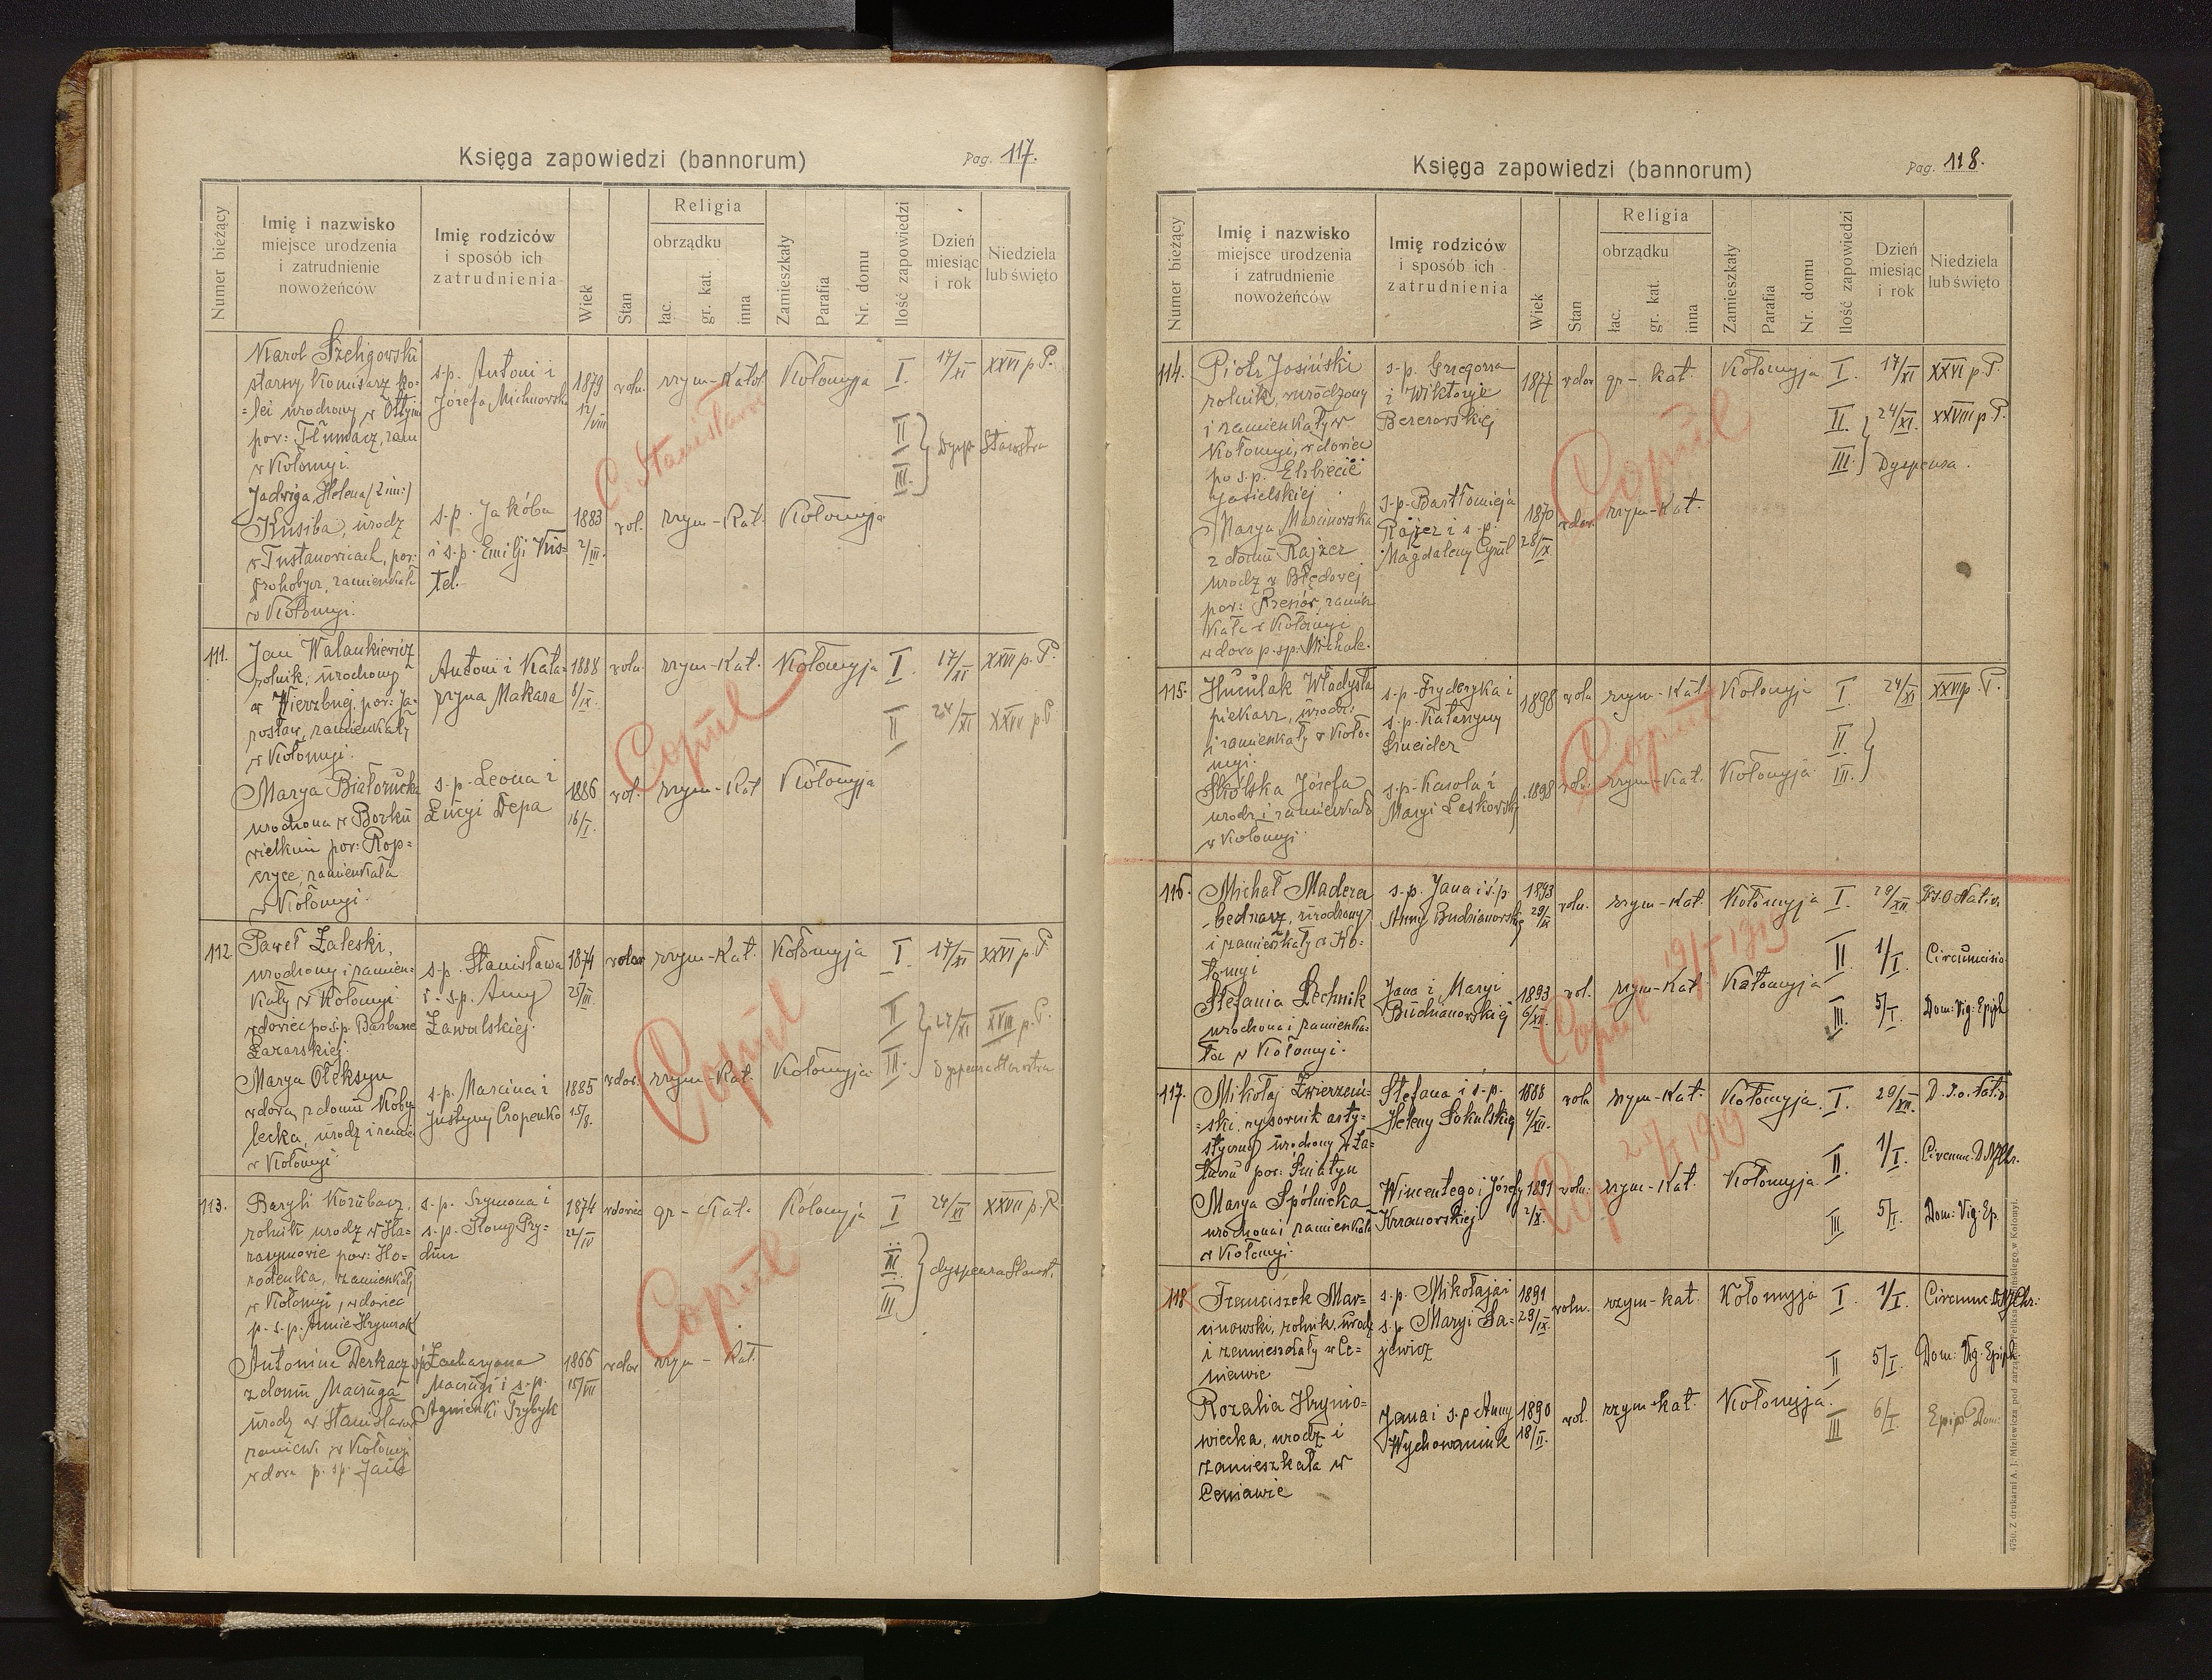 Księga zapowiedzi (bannorum)
Pag. 117.
Numer bieżący
Imię i nazwisko
miejsce urodzenia
i zatrudnienie
nowożeńców
Imię rodziców
i sposób ich
zatrudnienia
Wiek
Stan
Religia
obrządku
łac.
gr. kat.
inna
Zamieszkały
Parafia
Nr. domu
Ilość zapowiedzi
Dzień
miesiąc
i rok
Niedziela
lub święto
Karol Szeligowski
starszy Komisarz ko-
lei urodzony w Ottyni
pow: Tłumacz, zam
w Kołomyi.
s.p. Antoni i
Józefa Michnowska
1879
12/VIII
woln.
rzym-Katol
Kołomyja
I.
17/XI
XXVI p. P.
II
III
Dysp. Starostwa
C. Stanisławów
Jadwiga Helena (2 im:)
Kusiba, urodz
w Tustanowicach, pow:
Drohobycz, zamieszkała
w Kołomyi.
s.p. Jakóba
i s.p. Emilji Kis-
tel.
1883
2/III.
wol.
rzym-Kat.
Kołomyja
111.
Jan Walankiewicz
rolnik, urodzony
w Wierzbnej, pow: Ja-
rosław, zamieszkały
w Kołomyi.
Antoni i Kata-
rzyna Makara
1888
8/IX.
woln.
rzym-Kat.
Kołomyja
I.
17/XI
XXVI p. P.
II
24/XI
XXVII p. P.
Copul
Marya Białorucka
urodzona w Borku
wielkim pow: Rop-
czyce, zamieszkała
w Kołomyi.
s.p. Leona i
Łucyi Depa
1886
16/I.
wol.
rzym-Kat
Kołomyja
112.
Paweł Zaleski,
urodzony i zamiesz-
kały w Kołomyi
wdowiec po s.p. Barbarze
Łazarskiej.
s.p. Stanisława
i s.p. Anny
Zawalskiej.
1874
25/III.
wdow
rzym-Kat.
Kołomyja
I.
17/XI
XXVI p. P.
II
III.
24/XI
XXVII p. P.
Dyspensa Starostwa
Copul
Marya Oleksyn
wdowa, z domu Koby-
lecka, urodz i zamie
w Kołomyi
s.p. Marcina i
Justyny Czopenko
1885
15/8.
wdow.
rzym-Kat.
Kołomyja
113.
Bazyli Kozubacz,
rolnik urodz w Ha-
rasymowie pow: Ho-
rodenka, zamieszkały
w Kołomyi, wdowiec
p. s.p. Annie Hrymrak
s.p. Szymona i
s.p. Ilony Pry-
dun
1874
22/IV
wdowiec
gr-Kat.
Kołomyja
I
24/XI
XXVII p. P.
II
III
dyspensa Starost.
Copul
Antonina Derkacz
z domu Maciuga
urodz w Stanisławow
zamieszk. w Kołomyi
wdowa p. sp. Janie
s.p. Zacharyasza
Maciugi i s.p.
Agnieszki Trybyk
1866
15/VII
wdow
rzym-Kat.
Księga zapowiedzi (bannorum)
Pag. 118.
Numer bieżący
Imię i nazwisko
miejsce urodzenia
i zatrudnienie
nowożeńców
Imię rodziców
i sposób ich
zatrudnienia
Wiek
Stan
Religia
obrządku
łac.
gr. kat.
inna
Zamieszkały
Parafia
Nr. domu
Ilość zapowiedzi
Dzień
miesiąc
i rok
Niedziela
lub święto
114.
Piotr Josiński
rolnik, urodzony
i zamieszkały w
Kołomyi, wdowiec
po s.p. Elżbiecie
Jasielskiej
s.p. Grzegorza
i Wiktorji
Bezerowskiej
1877
wdow
gr-kat.
Kołomyja
I.
17/XI
XXVI p. P.
II.
24/XI.
XXVIII p. P.
III.
Dyspensa.
Copul
Marya Marcinowska
z domu Rajzer
urodz w Błędowej
pow: Rzeszów, zamiesz
kała w Kołomyi
wdowa p. sp. Michale.
s.p. Bartłomieja
Rajzer i s.p.
Magdaleny Cyrul
1870
28/IX.
wdow.
rzym-Kat.
115.
Huculak Władysła
piekarz, urodz.
i zamieszkały w Koło-
myi.
s.p. Fryderyka i
s.p. Katarzyny
Sneider
1898
woln
rzym-Kat.
Kołomyja
I.
24/XI
XXVII p. P.
II
III.
Copul
Skolska Józefa
urodz i zamieszkała
w Kołomyi.
s.p. Karola i
Maryi Laskowskiej
1898
woln.
rzym-Kat.
Kołomyja
116.
Michał Madera
bednarz, urodzony
i zamieszkały w Ko-
łomyi
s.p. Jana i s.p
Anny Budzianowskiej
1893
29/IX
woln.
rzym-Kat.
Kołomyja
I.
29/XII.
II
1/I.
Circumcisio
III.
5/I.
Dom: Vig: Epiph
Copul 19/I 1919
Stefania Lechnik
urodzona i zamieszka-
ła w Kołomyi.
Jana i Maryi
Budzianowskiej
1893
6/XII.
wol.
rzym-Kat
Kołomyja
117.
Mikołaj Zwierzeń-
ski, rysownik arty-
styczny, urodzony w Za-
łuczu pow: Śniatyn
Stefana i s.p.
Heleny Sokalskiej
1888
4/XII.
woln
rzym-Kat.
Kołomyja.
I.
29/XII.
II.
1/I.
III.
5/I.
Dom: Vig: Ep.
Cop 25/I 1919
Marya Spólnicka
urodzona i zamieszkała
w Kołomyi.
Wincentego i Józefy
Krzanowskiej
1891
2/X.
woln.
rzym-Kat.
Kołomyja
118
Franciszek Mar-
cinowski, rolnik, urodz
i zamieszkały w Ce-
niawie
s.p. Mikołaja i
s.p Maryi Sa-
jewicz
1891
29/IX.
woln.
rzym-kat.
Kołomyja
I.
1/I.
II
5/I.
Dom: Vig: Epiph
III
6/I.
Epip Dom:
Rozalia Hrynio-
wiecka, urodz i
zamieszkała w
Ceniawie
Jana i s.p Anny
Wychowaniuk
1890
18/II.
wol.
rzym-kat.
Kołomyja.